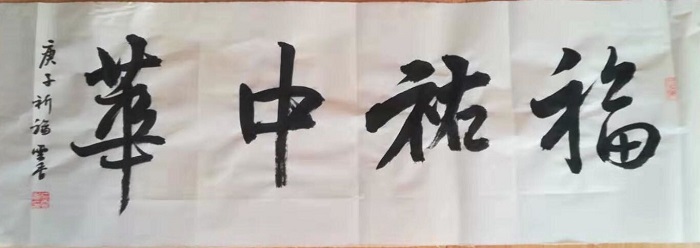 福祐中華
庚子祈福雲谷